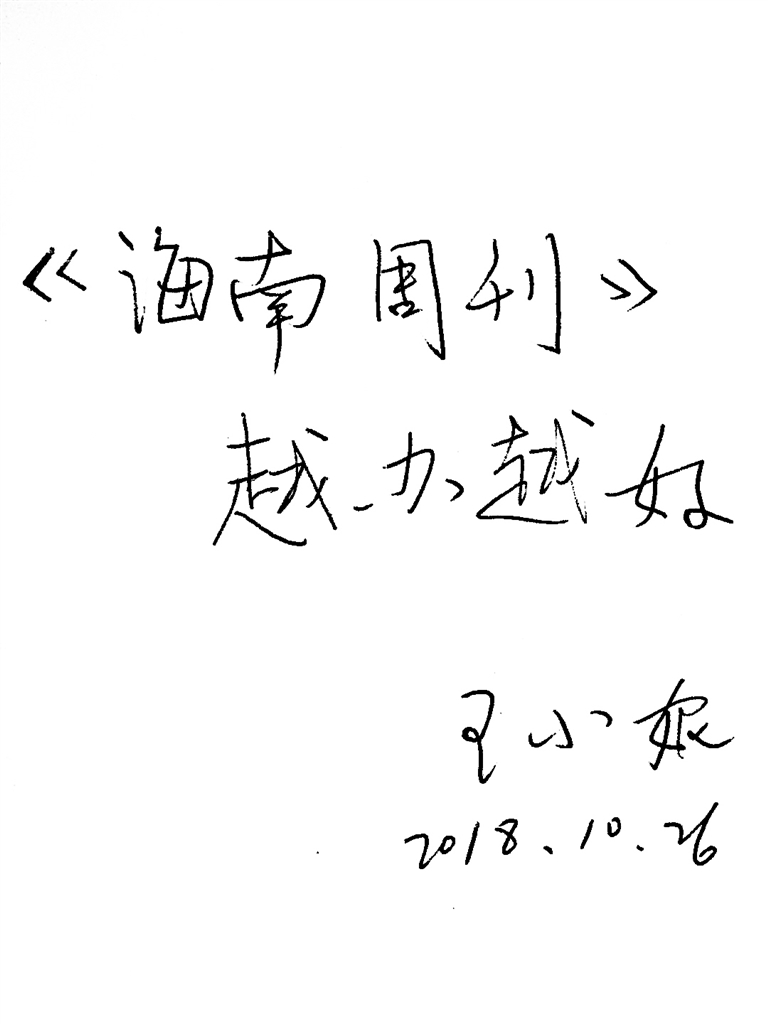 《海南周刊》
越办越好
王小娘
2018.10.26